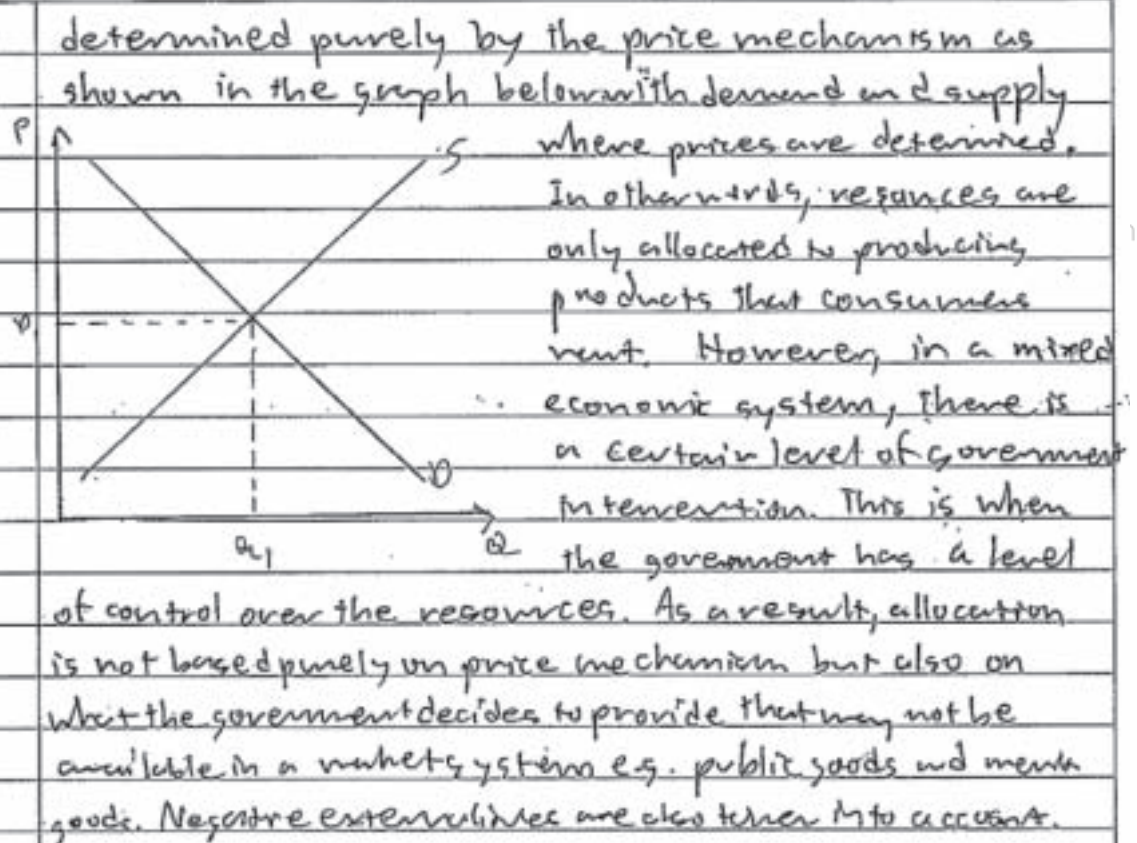 determined purely by the price mechanism as
shown in the graph below with demand and supply
P
S
where prices are determined.
In other words, resources are
only allocated to producing
products that consumers
P
want. However, in a mixed
economic system, there is
D
a certain level of government
intervention. This is when
Q1
Q
the government has a level
of control over the resources. As a result, allocation
is not based purely on price mechanism but also on
what the government decides to provide that may not be
available in a market system e.g. public goods and merit
goods. Negative externalities are also taken into account.